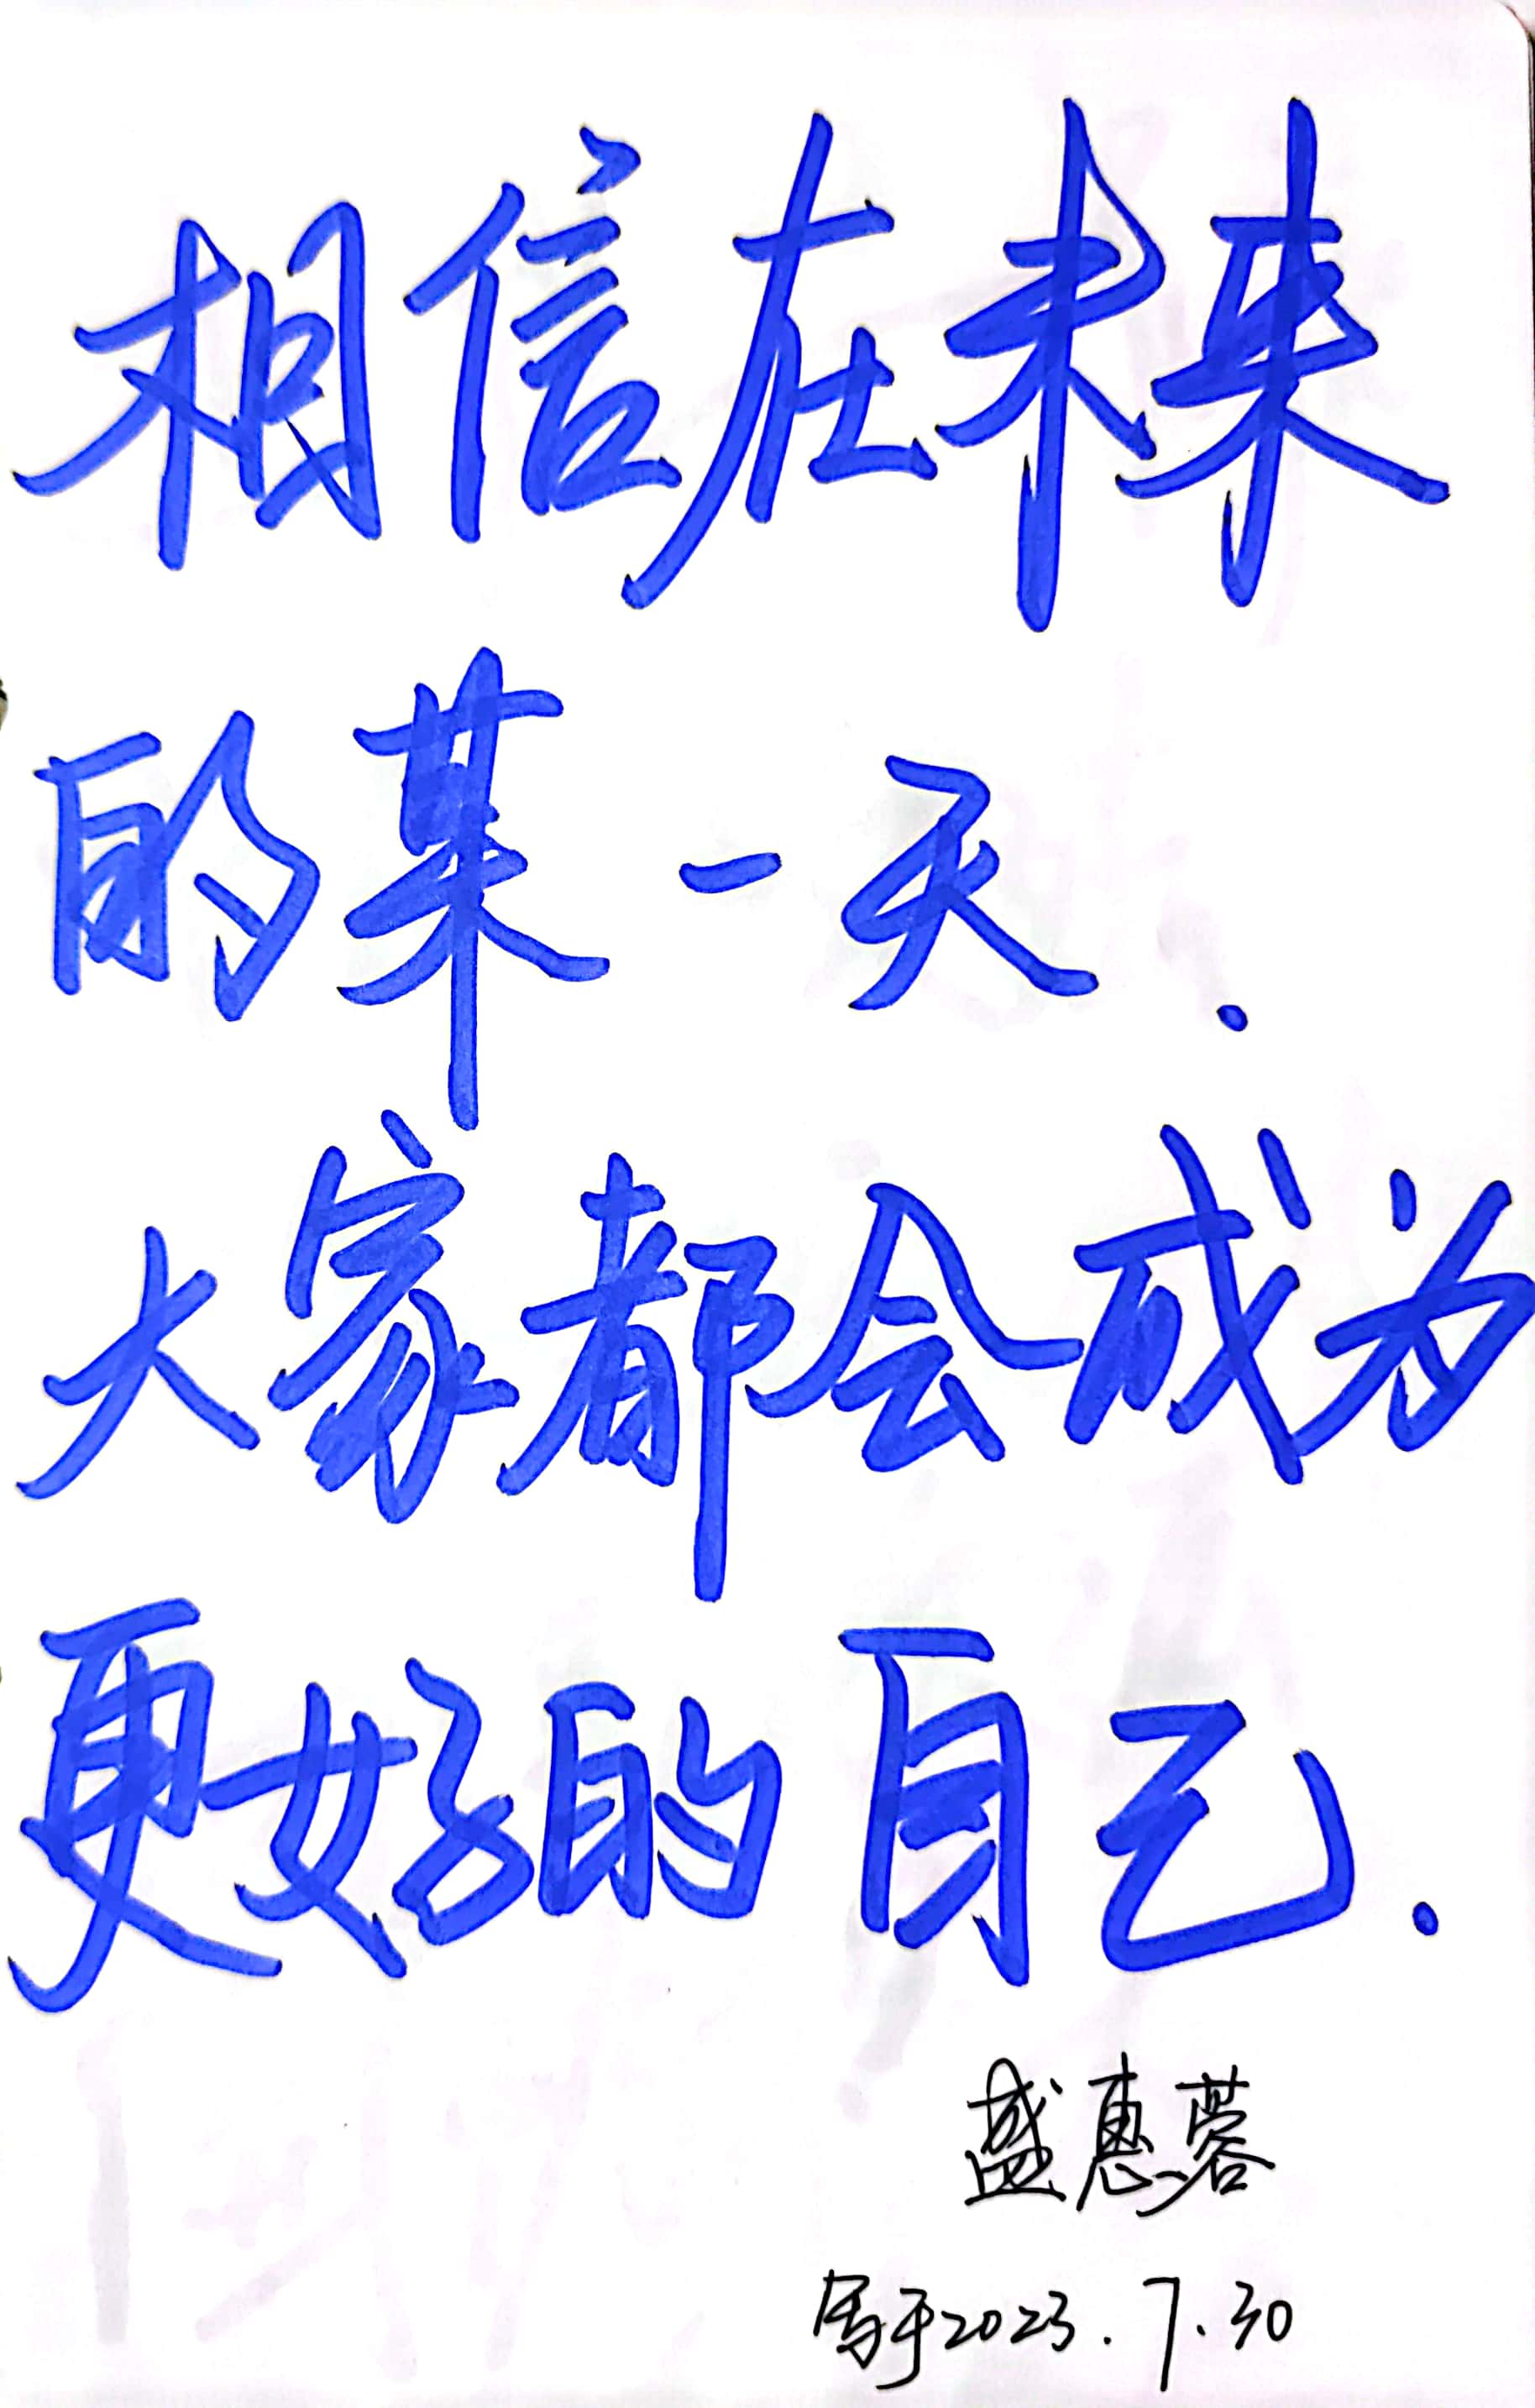 相信在未来
的某一天.
大家都会成为
更好的自己.
盛惠蓉
写于2023.7.30